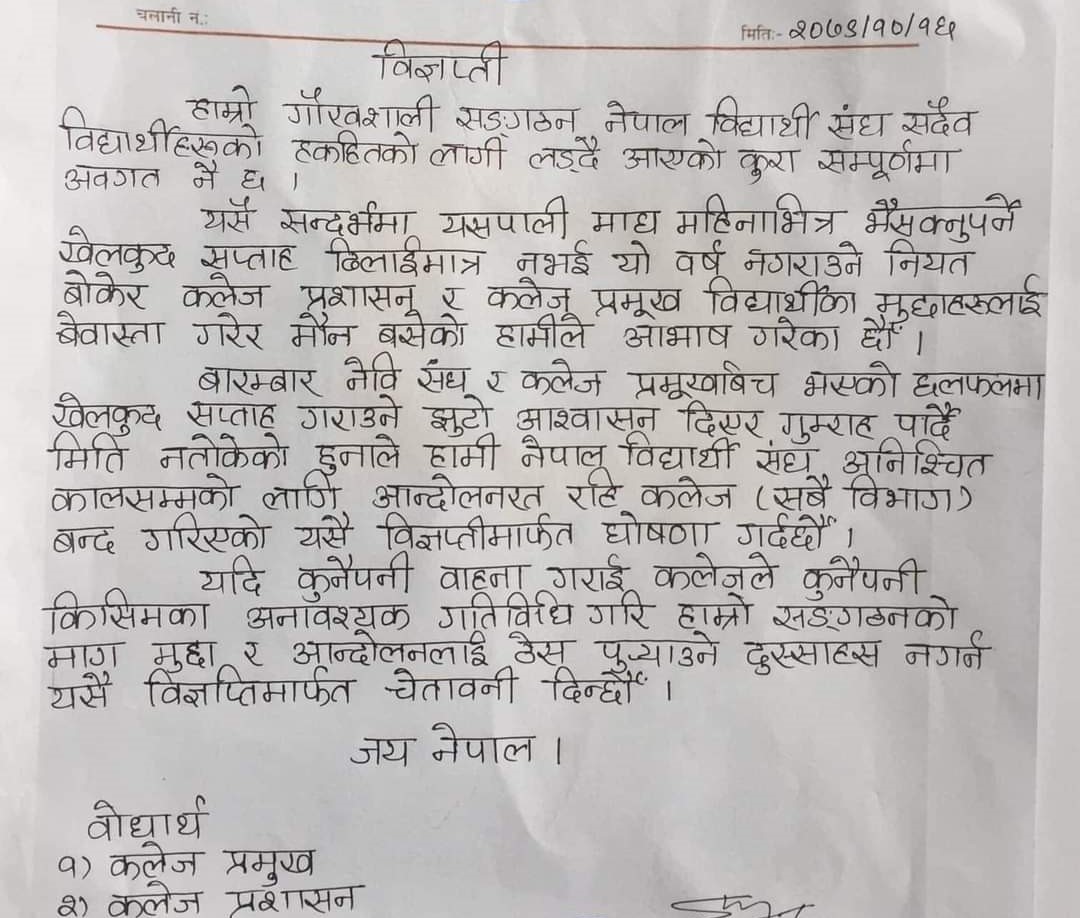 चलानी नं.:
मिति:- २०७९/१०/१६
विज्ञप्ती
हाम्रो गौरवशाली सङ्गठन नेपाल विद्यार्थी संघ सदैव
विद्यार्थीहरूको हकहितको लागी लड्दै आएको कुरा सम्पूर्णमा
अवगत नै छ ।
यसै सन्दर्भमा यसपाली माघ महिनाभित्र भैसक्नुपर्ने
खेलकुद सप्ताह ढिलाईमात्र नभई यो वर्ष नगराउने नियत
बोकेर कलेज प्रशासन र कलेज प्रमूख विद्यार्थीका मुद्दाहरुलाई
बेवास्ता गरेर मौन बसेको हामीले आभाष गरेका छौं ।
बारम्बार नेवि संघ र कलेज प्रमूखबिच भएको छलफलमा
खेलकुद सप्ताह गराउने झुटो आश्वासन दिएर गुम्राह पार्दै
मिति नतोकेको हुनाले हामी नेपाल विद्यार्थी संघ अनिश्चित
कालसम्मको लागि आन्दोलनरत रहि कलेज (सबै विभाग)
बन्द गरिएको यसै विज्ञप्तीमार्फत घोषणा गर्दछौं ।
यदि कुनैपनी वाहना गराई कलेजले कुनैपनी
किसिमका अनावश्यक गतिविधि गरि हाम्रो सङ्गठनको
माग मुद्दा र आन्दोलनलाई ठेस पुर्‍याउने दुस्साहस नगर्न
यसै विज्ञप्तिमार्फत चेतावनी दिन्छौं ।
जय नेपाल ।
वोधार्थ
१) कलेज प्रमुख
२) कलेज प्रशासन